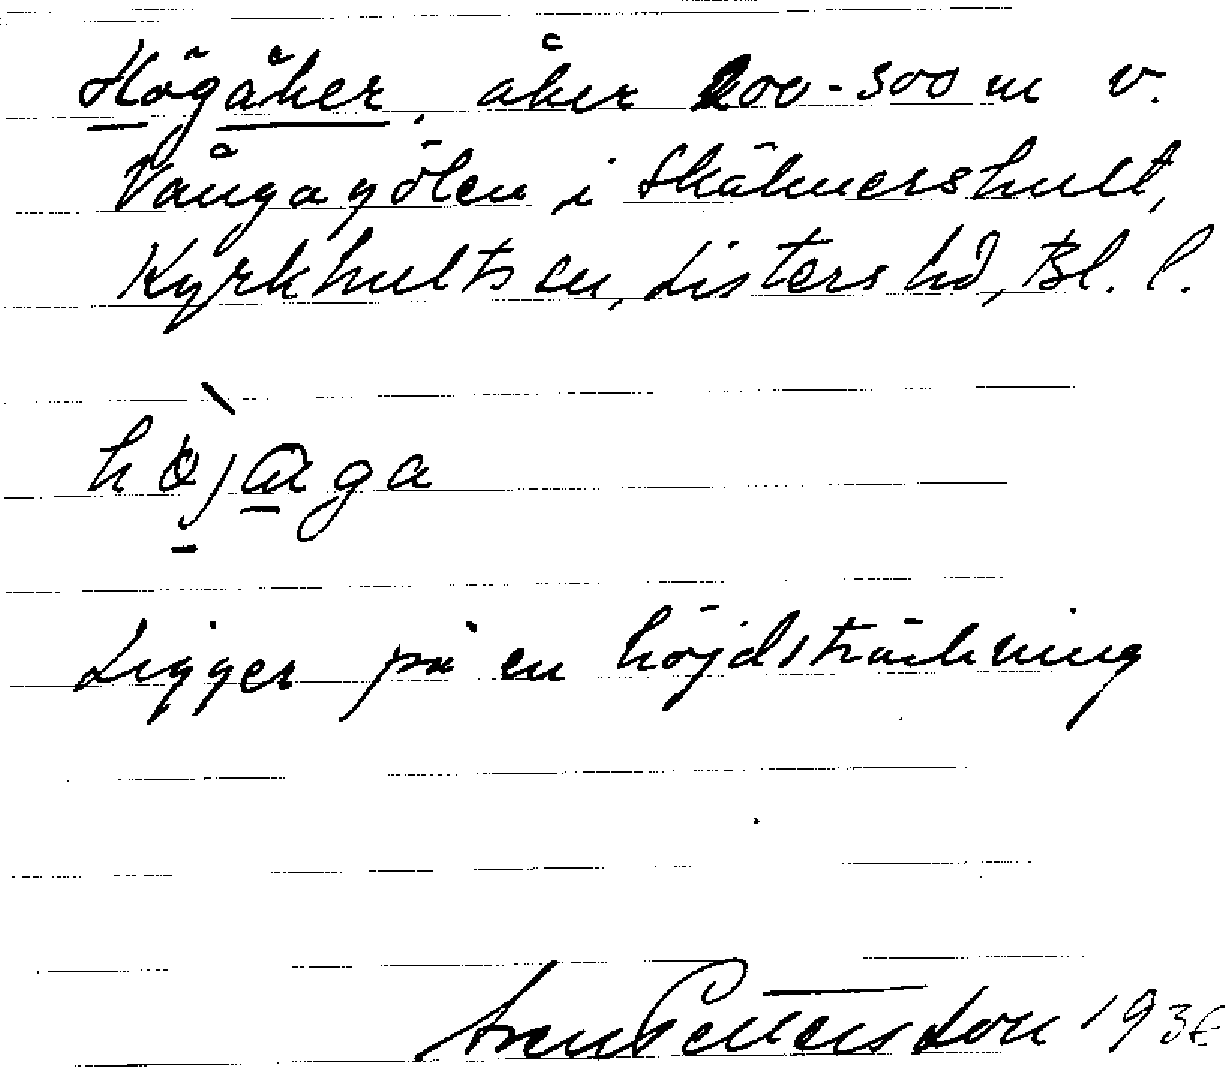 Högåker, åker 200-300 m v.
Vångagölen i Skälmershult,
Kyrkhults sn, Listers hd, Bl. l.
höjaga
Ligger på en höjdsträckning
Sven Pettersson